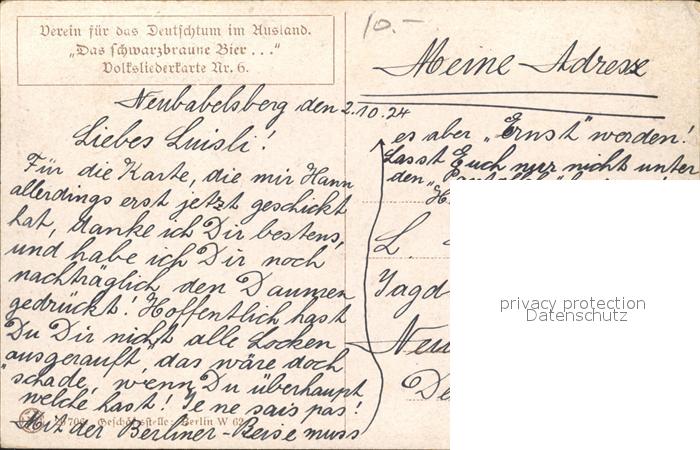 Verein für das Deutschtum im Ausland.
„Das schwarzbraune Bier . . .“
Volksliederkarte Nr. 6.
10.-
Meine Adresse
Neubabelsberg den 2.10.24
Liebes Luisli!
Für die Karte, die mir Hann
allerdings erst jetzt geschickt
hat, danke ich Dir bestens,
und habe ich Dir noch
nachträglich den Daumen
gedrückt! Hoffentlich hast
Du Dir nicht alle Locken
„ausgerauft“, das wäre doch
schade, wenn Du überhaupt
welche hast! Je ne sais pas!
Mit der Berliner-Reise muss
Geschäftsstelle: Berlin W 62
es aber „Ernst“ werden!
Lasst Euch nur nicht unter
den
L.
Jagd
Neu
De
privacy protection
Datenschutz